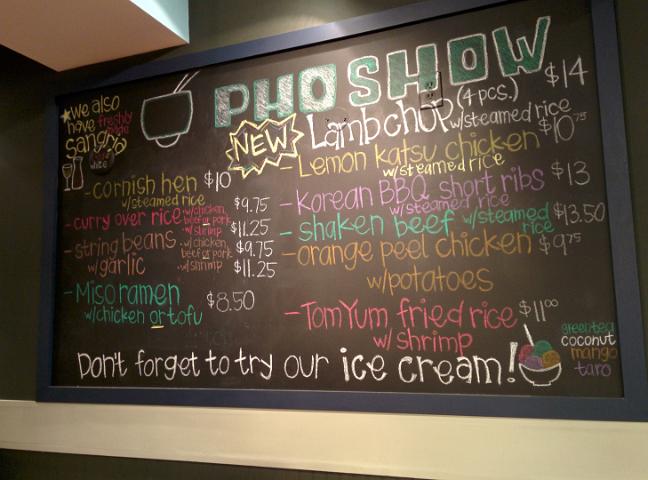 PHO SHOW
★we also
have freshly
made
sangria
white
NEW
Lambchop (4 pcs.) $14
w/steamed rice
- Lemon katsu chicken $10.75
w/steamed rice
- Korean BBQ short ribs $13
w/steamed rice
- shaken beef w/steamed rice $13.50
- orange peel chicken $9.75
w/potatoes
- Tom Yum fried rice $11.00
w/shrimp
- cornish hen $10
w/steamed rice
- curry over rice •w/chicken, beef or pork $9.75
•w/shrimp $11.25
- string beans w/garlic •w/chicken, beef or pork $9.75
•w/shrimp $11.25
- Miso ramen $8.50
w/chicken or tofu
Don't forget to try our ice cream!
green tea
coconut
mango
taro